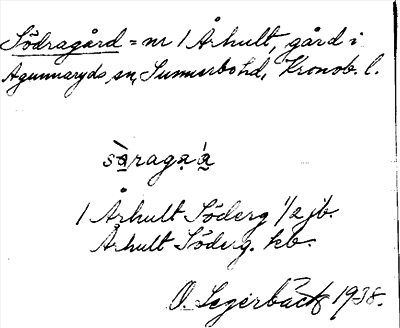 Södragård = nr 1 Århult, gård i
Agunnaryds sn, Sunnerbo hd, Kronob. l.
1 Århult Söderg 1/2 jb.
Århult Söderg. kb.
O. Segerbäck 1938.